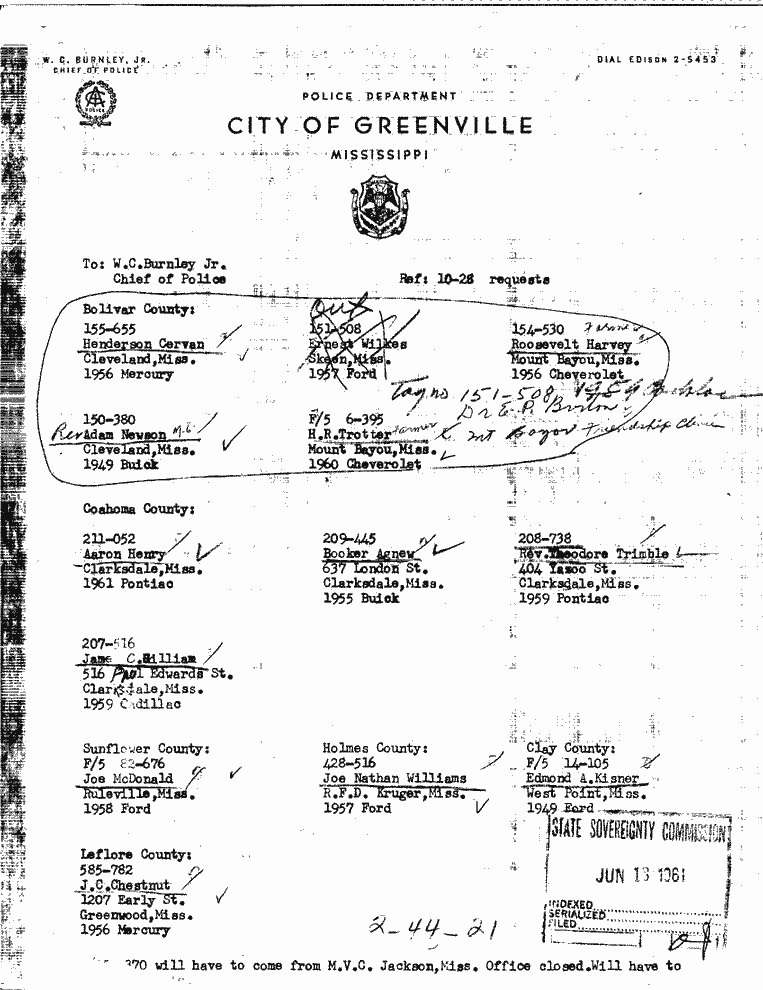 W. C. BURNLEY, JR.
CHIEF OF POLICE
DIAL EDISON 2-5453
POLICE DEPARTMENT
CITY OF GREENVILLE
MISSISSIPPI
To: W.C.Burnley Jr.
Chief of Police
Ref: 10-28 requests
Bolivar County:
out
155-655
Henderson Cervan
Cleveland,Miss.
1956 Mercury
151-508
Ernest Wilkes
Skeen,Miss.
1957 Ford
154-530 Farmer
Roosevelt Harvey
Mount Bayou,Miss.
1956 Cheverolet
Tag no 151-508, 1959
Dr E.P. Burton
Mt Bayou Friendship Clinic
150-380
Rev Adam Newson
Cleveland,Miss.
1949 Buick
F/5 6-395
H.R.Trotter Farmer
Mount Bayou,Miss.
1960 Cheverolet
Coahoma County:
211-052
Aaron Henry
Clarksdale,Miss.
1961 Pontiac
209-445
Booker Agnew
637 London St.
Clarksdale,Miss.
1955 Buick
208-738
Rev.Theodore Trimble
404 Yazoo St.
Clarksdale,Miss.
1959 Pontiac
207-516
Jame C.Gilliam
516 Paul Edwards St.
Clarksdale,Miss.
1959 Cadillac
Sunflower County:
F/5 82-676
Joe McDonald
Ruleville,Miss.
1958 Ford
Holmes County:
428-516
Joe Nathan Williams
R.F.D. Kruger,Miss.
1957 Ford
Clay County:
F/5 14-105
Edmond A.Kisner
West Point,Miss.
1949 Ford
Leflore County:
585-782
J.C.Chestnut
1207 Early St.
Greenwood,Miss.
1956 Mercury
STATE SOVEREIGNTY COMMISSION
JUN 13 1961
INDEXED
SERIALIZED
FILED
2-44-21
370 will have to come from M.V.C. Jackson,Miss. Office closed.Will have to